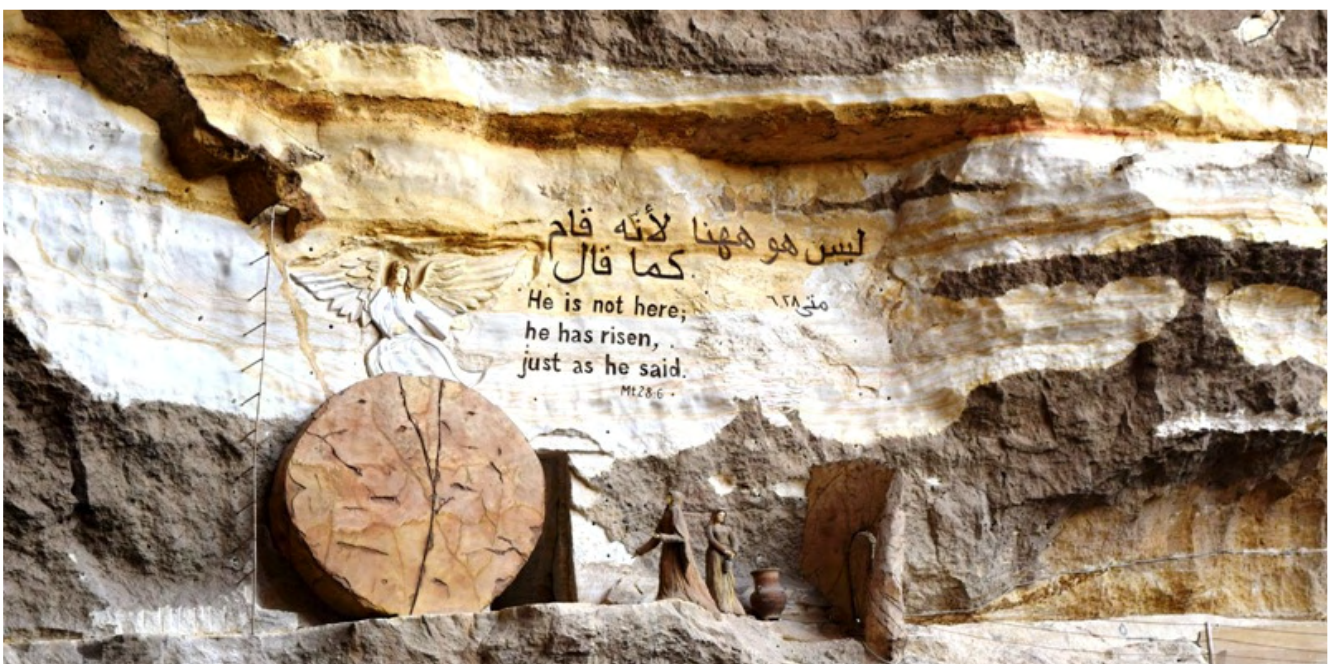 ليس هو ههنا لأنه قام
كما قال
متى ٦.٢٨
He is not here;
he has risen,
just as he said.
Mt28:6